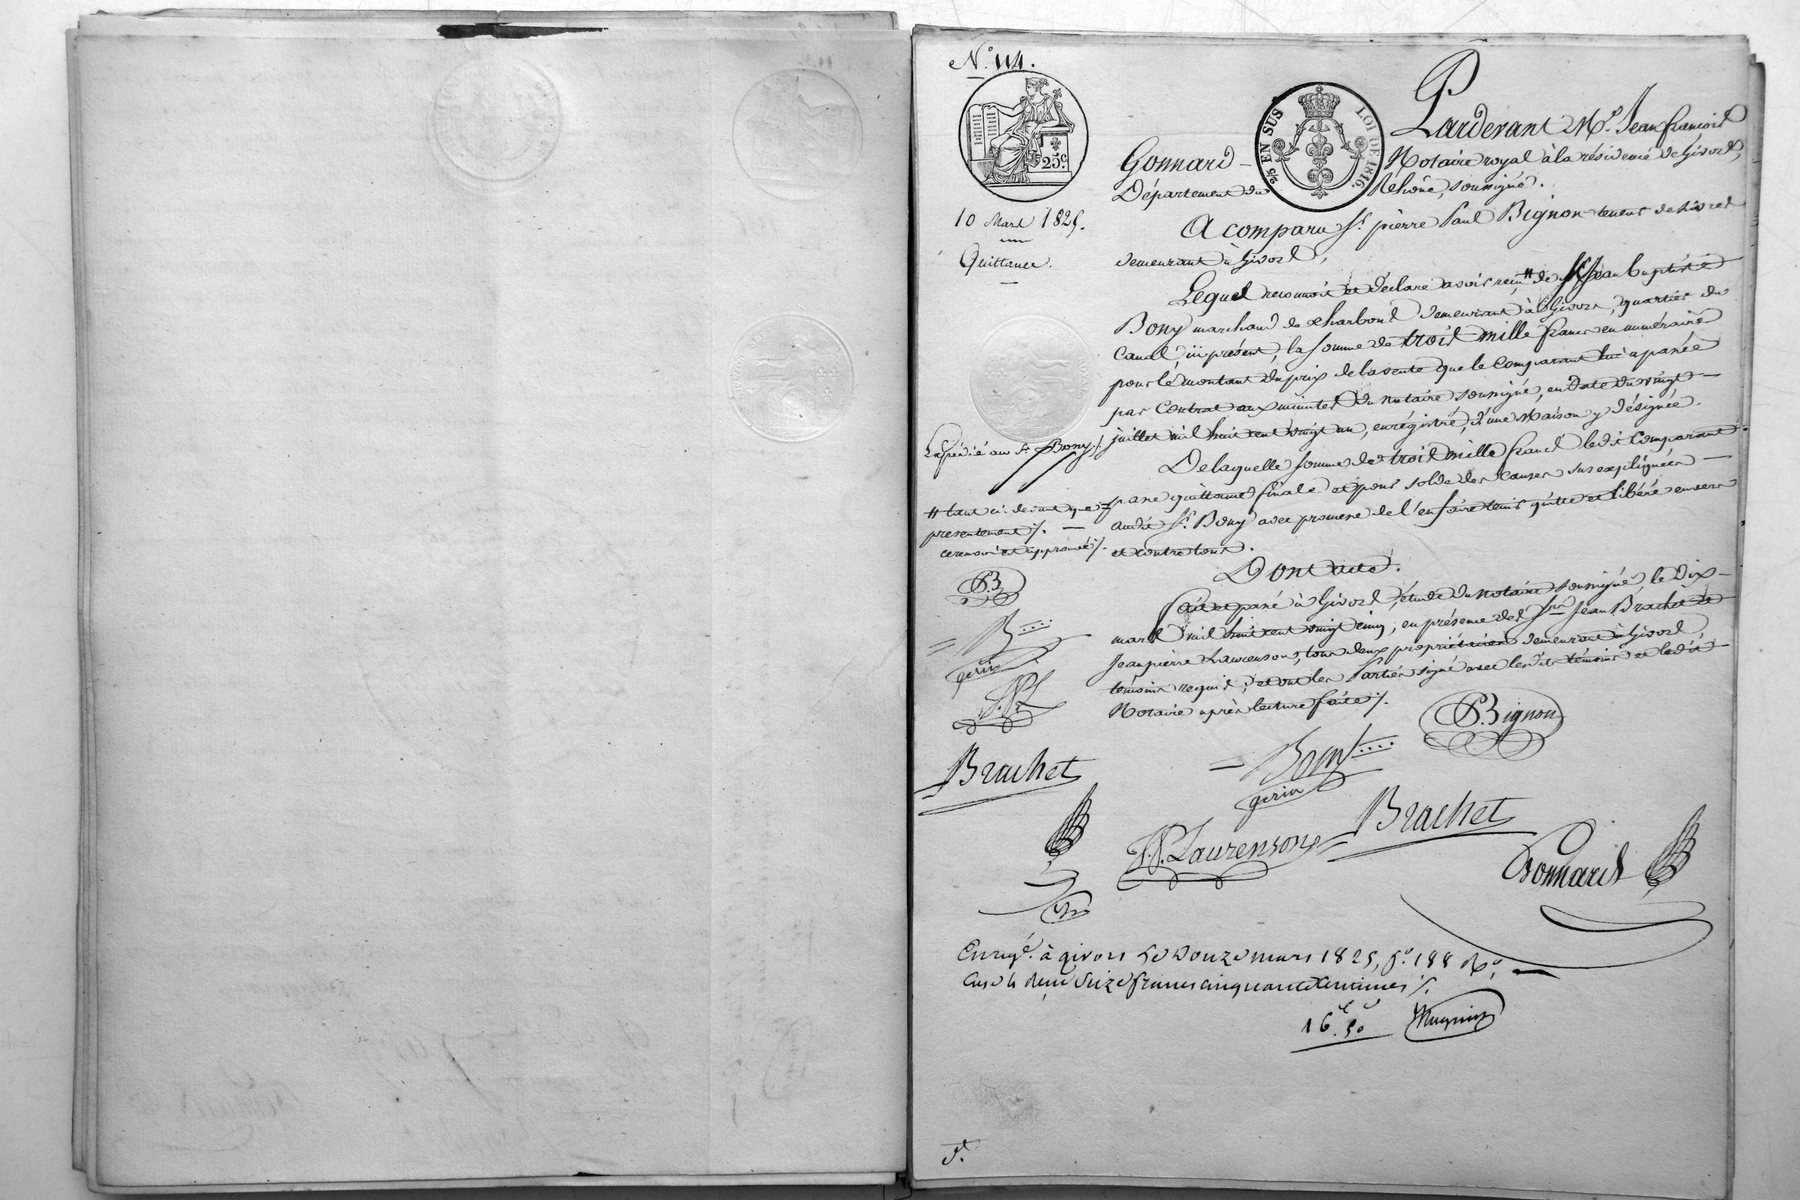 N.° 114.
25.c
5/c EN SUS
LOI DE 1816.
10 Mars 1825.
Quittance.
Pardevant M.e Jean françois
Gonnard Notaire royal à la résidence de Givors,
Département du Rhône, soussigné.
A comparu Sr. pierre Paul Bignon teneur de livres
demeurant à Givors,
Lequel reconnoit et déclare avoir reçu # de Sr Jean baptiste
Bony marchand de charbons demeurant à Givors, quartier du
Canal, ici présent, la somme de trois mille francs en numéraire
pour le montant du prix de la vente que le Comparant lui a passée
par Contrat aux minutes du notaire soussigné, en Date du vingt
juillet mil huit cent vingt un, enregistré, d'une Maison y désignée.
De laquelle somme de trois mille francs ledit Comparant
passe quittance finale et pour solde des causes sus expliquées
audit Sr. Bony avec promesse de l'en faire tenir quitte et libéré envers
et contre tous.
Dont acte.
fait et passé à Givors, étude du notaire soussigné, le Dix
mars mil huit cent vingt cinq, en présence des Srs Jean Brachet et
Jean pierre Laurenson, tous deux propriétaires demeurant à Givors
témoins requis, et ont les Parties signé avec lesdits témoins et ledit
Notaire après lecture faite ./.
Expédié au Sr Bony ./.
# tant ci-devant que
presentement ./.
ce renvoi est approuvé ./.
P.B
B
gerin
J.P.L
Brachet
P. Bignon
Bony
gerin
J.P. Laurenson
Brachet
Gonnard
Enregé. à givors Le Douze mars 1825, fo. 188 Ro.
Case 4 reçu Seize francs cinquante Centimes ./.
16.50